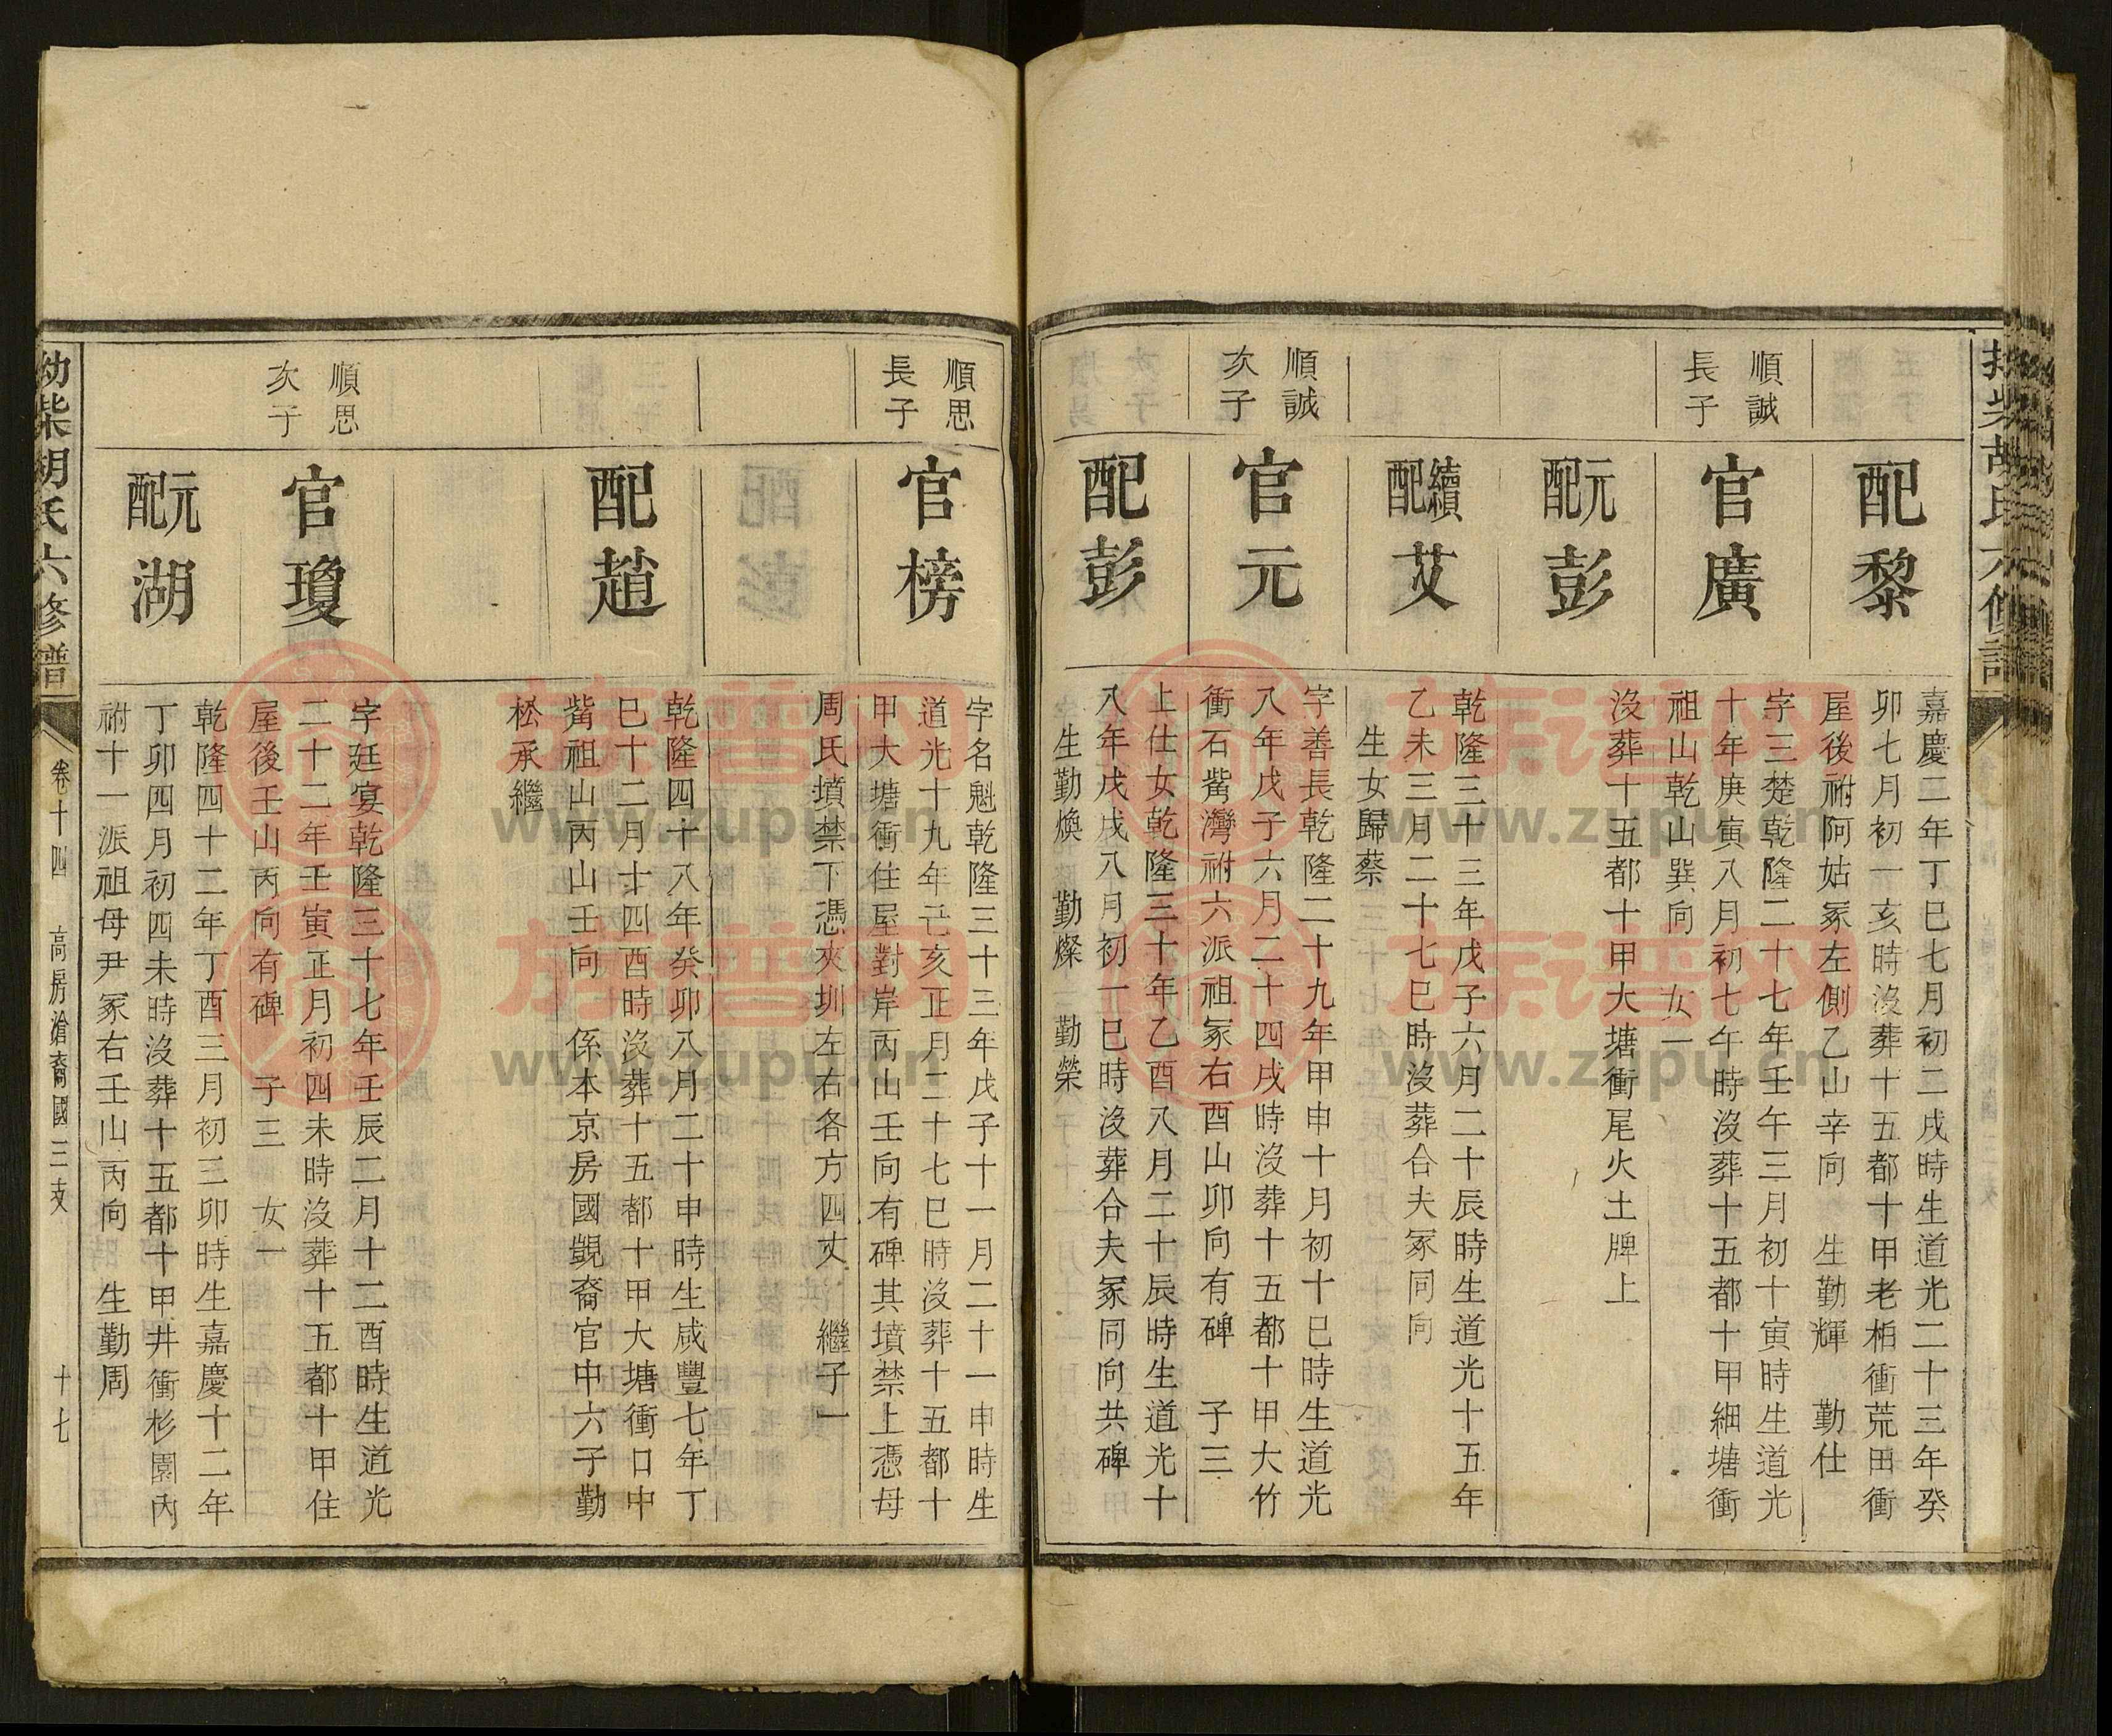 配黎
嘉慶二年丁巳七月初二戌時生道光二十三年癸
卯七月初一亥時沒葬十五都十甲老柏衝荒田衝
屋後祔阿姑冢左側乙山辛向 生勤輝 勤仕
順誠
長子
官廣
字三楚乾隆二十七年壬午三月初十寅時生道光
十年庚寅八月初七午時沒葬十五都十甲細塘衝
祖山乾山巽向 女一
元配彭
沒葬十五都十甲大塘衝尾火土牌上
續配艾
乾隆三十三年戊子六月二十辰時生道光十五年
乙未三月二十七巳時沒葬合夫冢同向
生女歸蔡
順誠
次子
官元
字善長乾隆二十九年甲申十月初十巳時生道光
八年戊子六月二十四戌時沒葬十五都十甲大竹
衝石觜灣祔六派祖冢右酉山卯向有碑 子三
配彭
上仕女乾隆三十年乙酉八月二十辰時生道光十
八年戊戌八月初一巳時沒葬合夫冢同向共碑
生勤煥 勤燦 勤榮
順思
長子
官榜
字名魁乾隆三十三年戊子十一月二十一申時生
道光十九年己亥正月二十七巳時沒葬十五都十
甲大塘衝住屋對岸丙山壬向有碑其墳禁上憑母
周氏墳禁下憑夾圳左右各方四丈 繼子一
配趙
乾隆四十八年癸卯八月二十申時生咸豐七年丁
巳十二月十四酉時沒葬十五都十甲大塘衝口中
觜祖山丙山壬向 係本京房國覬裔官中六子勤
松承繼
順思
次子
官瓊
字廷宴乾隆三十七年壬辰二月十二酉時生道光
二十二年壬寅正月初四未時沒葬十五都十甲住
屋後壬山丙向有碑 子三 女一
元配湖
乾隆四十二年丁酉三月初三卯時生嘉慶十二年
丁卯四月初四未時沒葬十五都十甲井衝杉園內
祔十一派祖母尹冢右壬山丙向 生勤周
柴胡氏六修譜
卷十四 高房滄裔國三支 十七